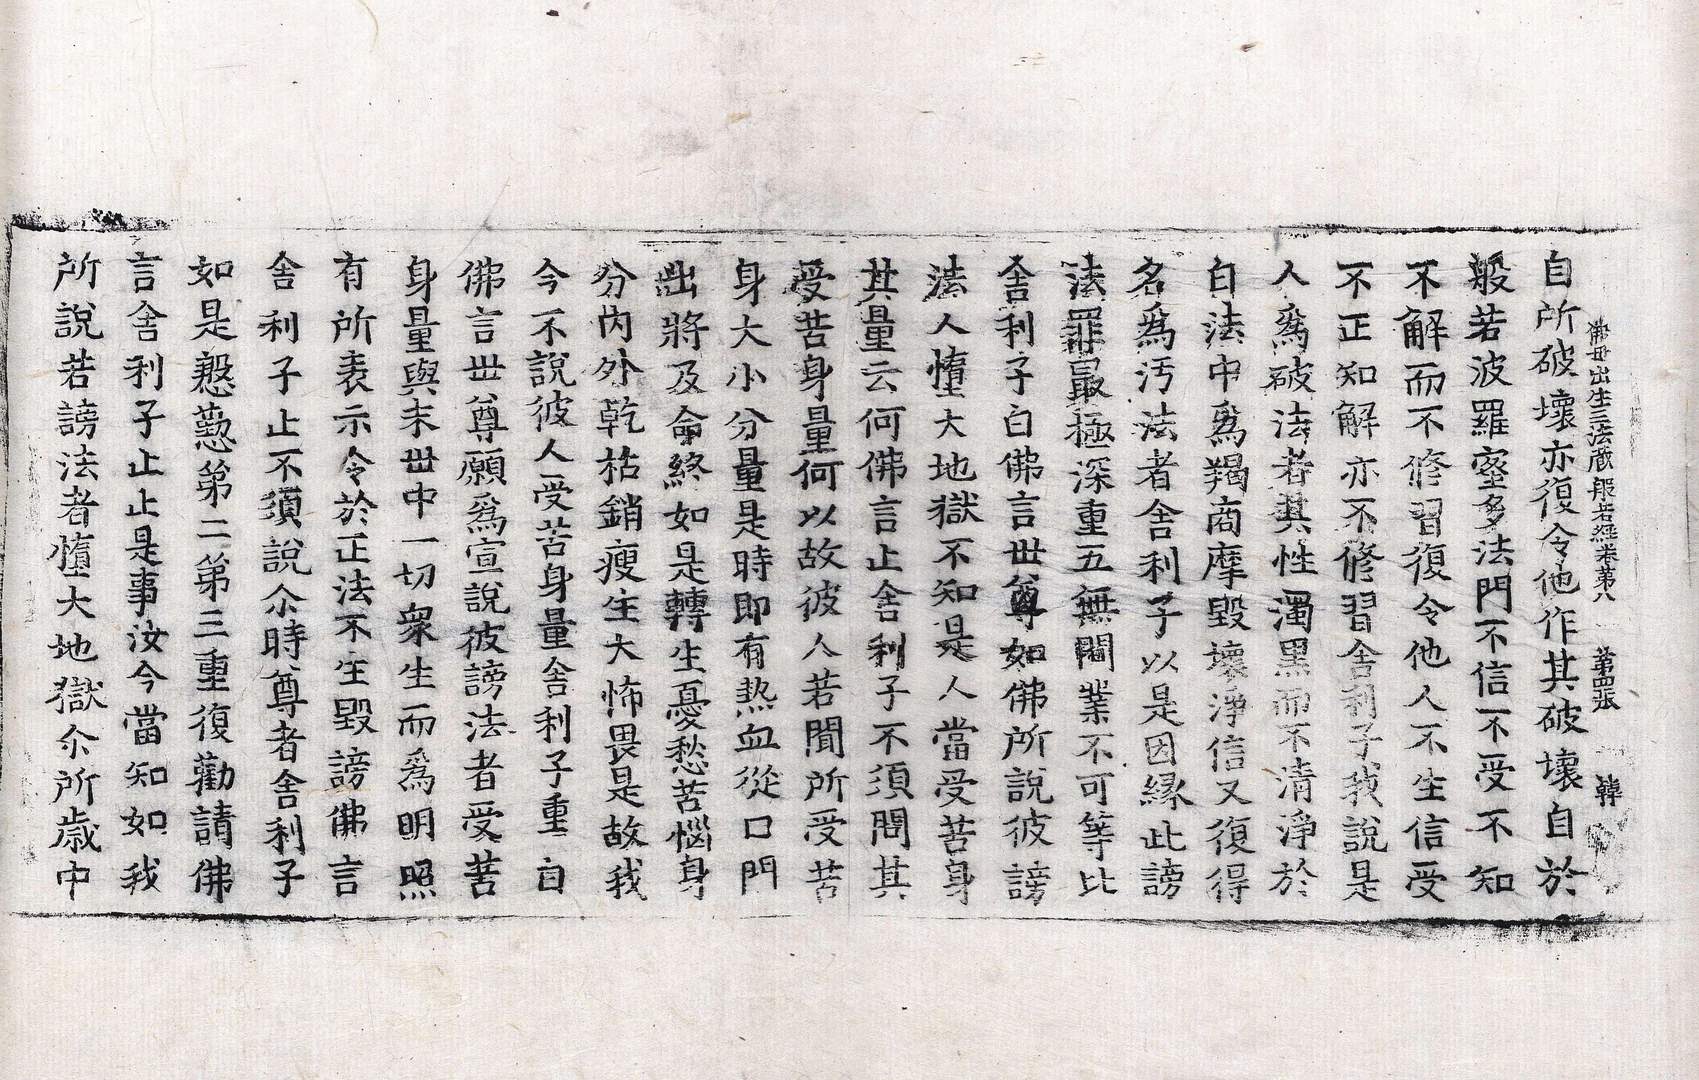 佛母出生三法藏般若經卷第八 第四張 韓
自所破壞亦復令他作其破壞自於
般若波羅蜜多法門不信不受不知
不解而不修習復令他人不生信受
不正知解亦不修習舍利子我說是
人爲破法者其性濁黑而不清淨於
白法中爲羯商摩毀壞淨信又復得
名爲汚法者舍利子以是因緣此謗
法罪最極深重五無間業不可等比
舍利子白佛言世尊如佛所說彼謗
法人墮大地獄不知是人當受苦身
其量云何佛言止舍利子不須問其
受苦身量何以故彼人若聞所受苦
身大小分量是時即有熱血從口門
出將及命終如是轉生憂愁苦惱身
分內外乾枯銷瘦生大怖畏是故我
今不說彼人受苦身量舍利子重白
佛言世尊願爲宣說彼謗法者受苦
身量與末世中一切衆生而爲明照
有所表示令於正法不生毀謗佛言
舍利子止不須說尒時尊者舍利子
如是慇懃第二第三重復勸請佛
言舍利子止止是事汝今當知如我
所說若謗法者墮大地獄尒所歲中